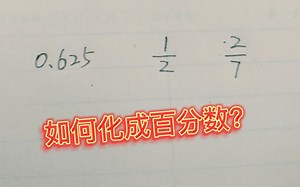 0.625 1/2 2/7
如何化成百分数?